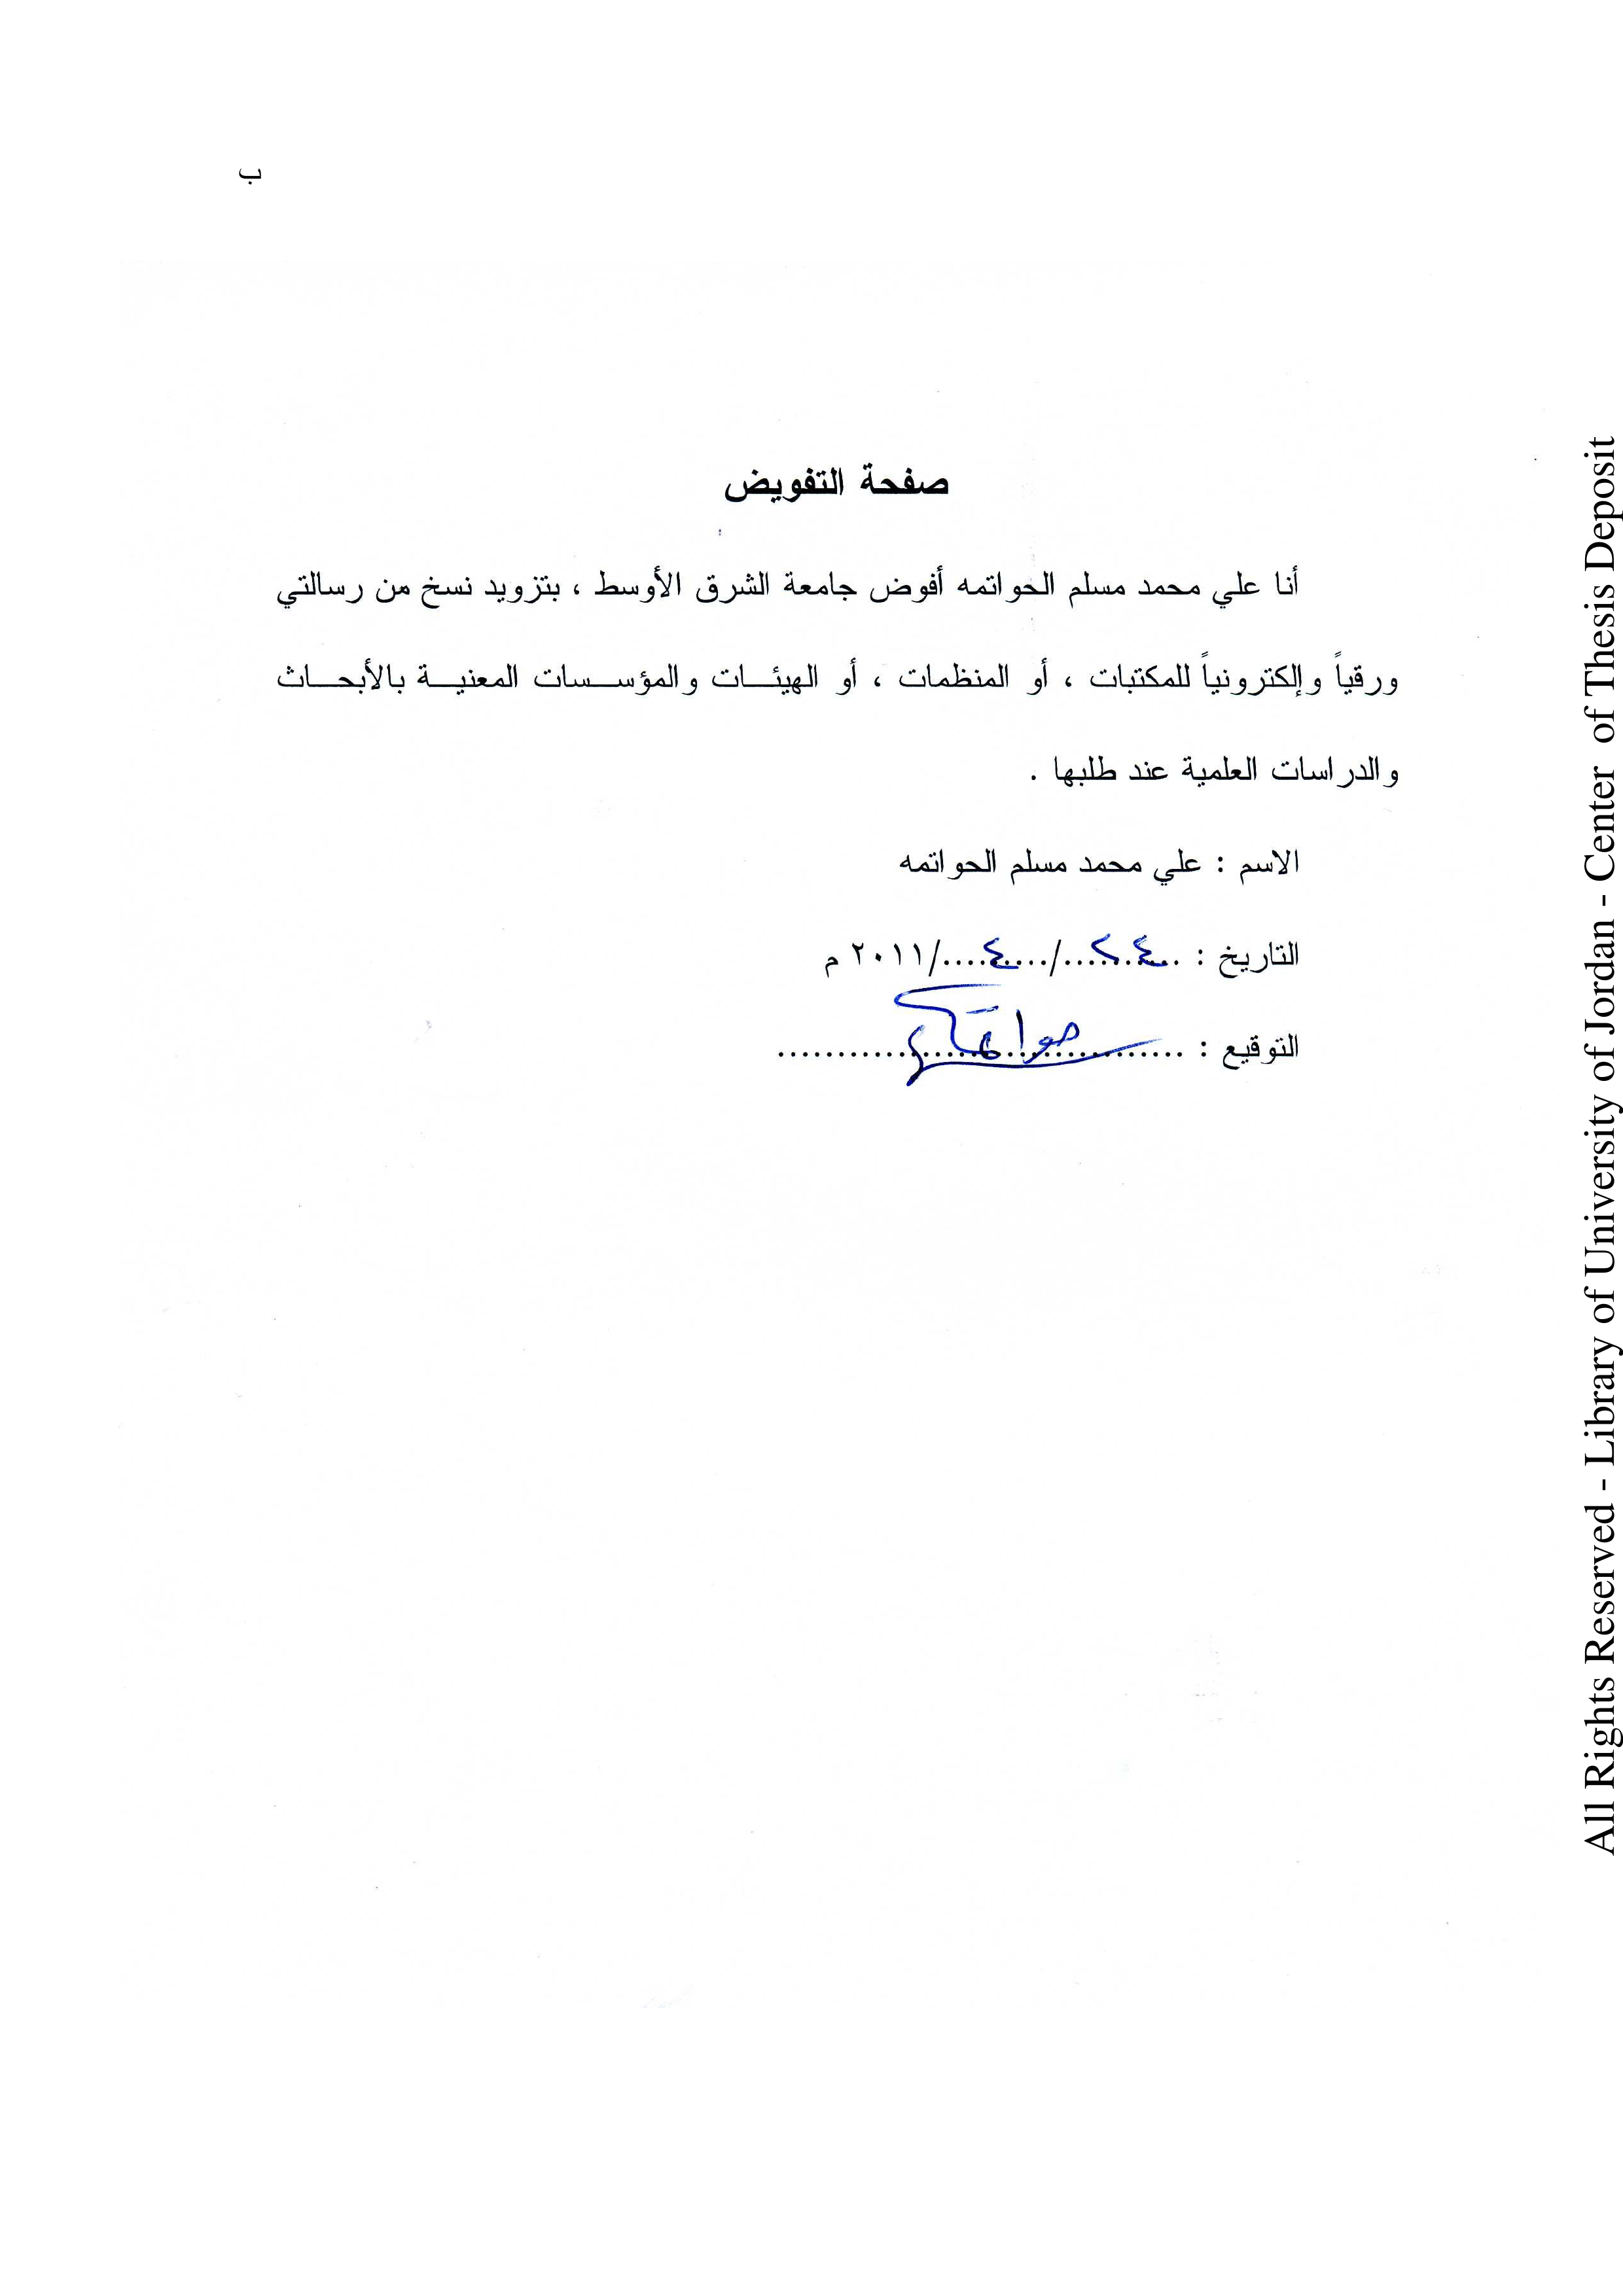 ب
صفحة التفويض
أنا علي محمد مسلم الحواتمه أفوض جامعة الشرق الأوسط ، بتزويد نسخ من رسالتي
ورقياً وإلكترونياً للمكتبات ، أو المنظمات ، أو الهيئات والمؤسسات المعنية بالأبحاث
والدراسات العلمية عند طلبها .
الاسم : علي محمد مسلم الحواتمه
التاريخ : ٢٤/٤/٢٠١١ م
التوقيع :
All Rights Reserved - Library of University of Jordan - Center of Thesis Deposit